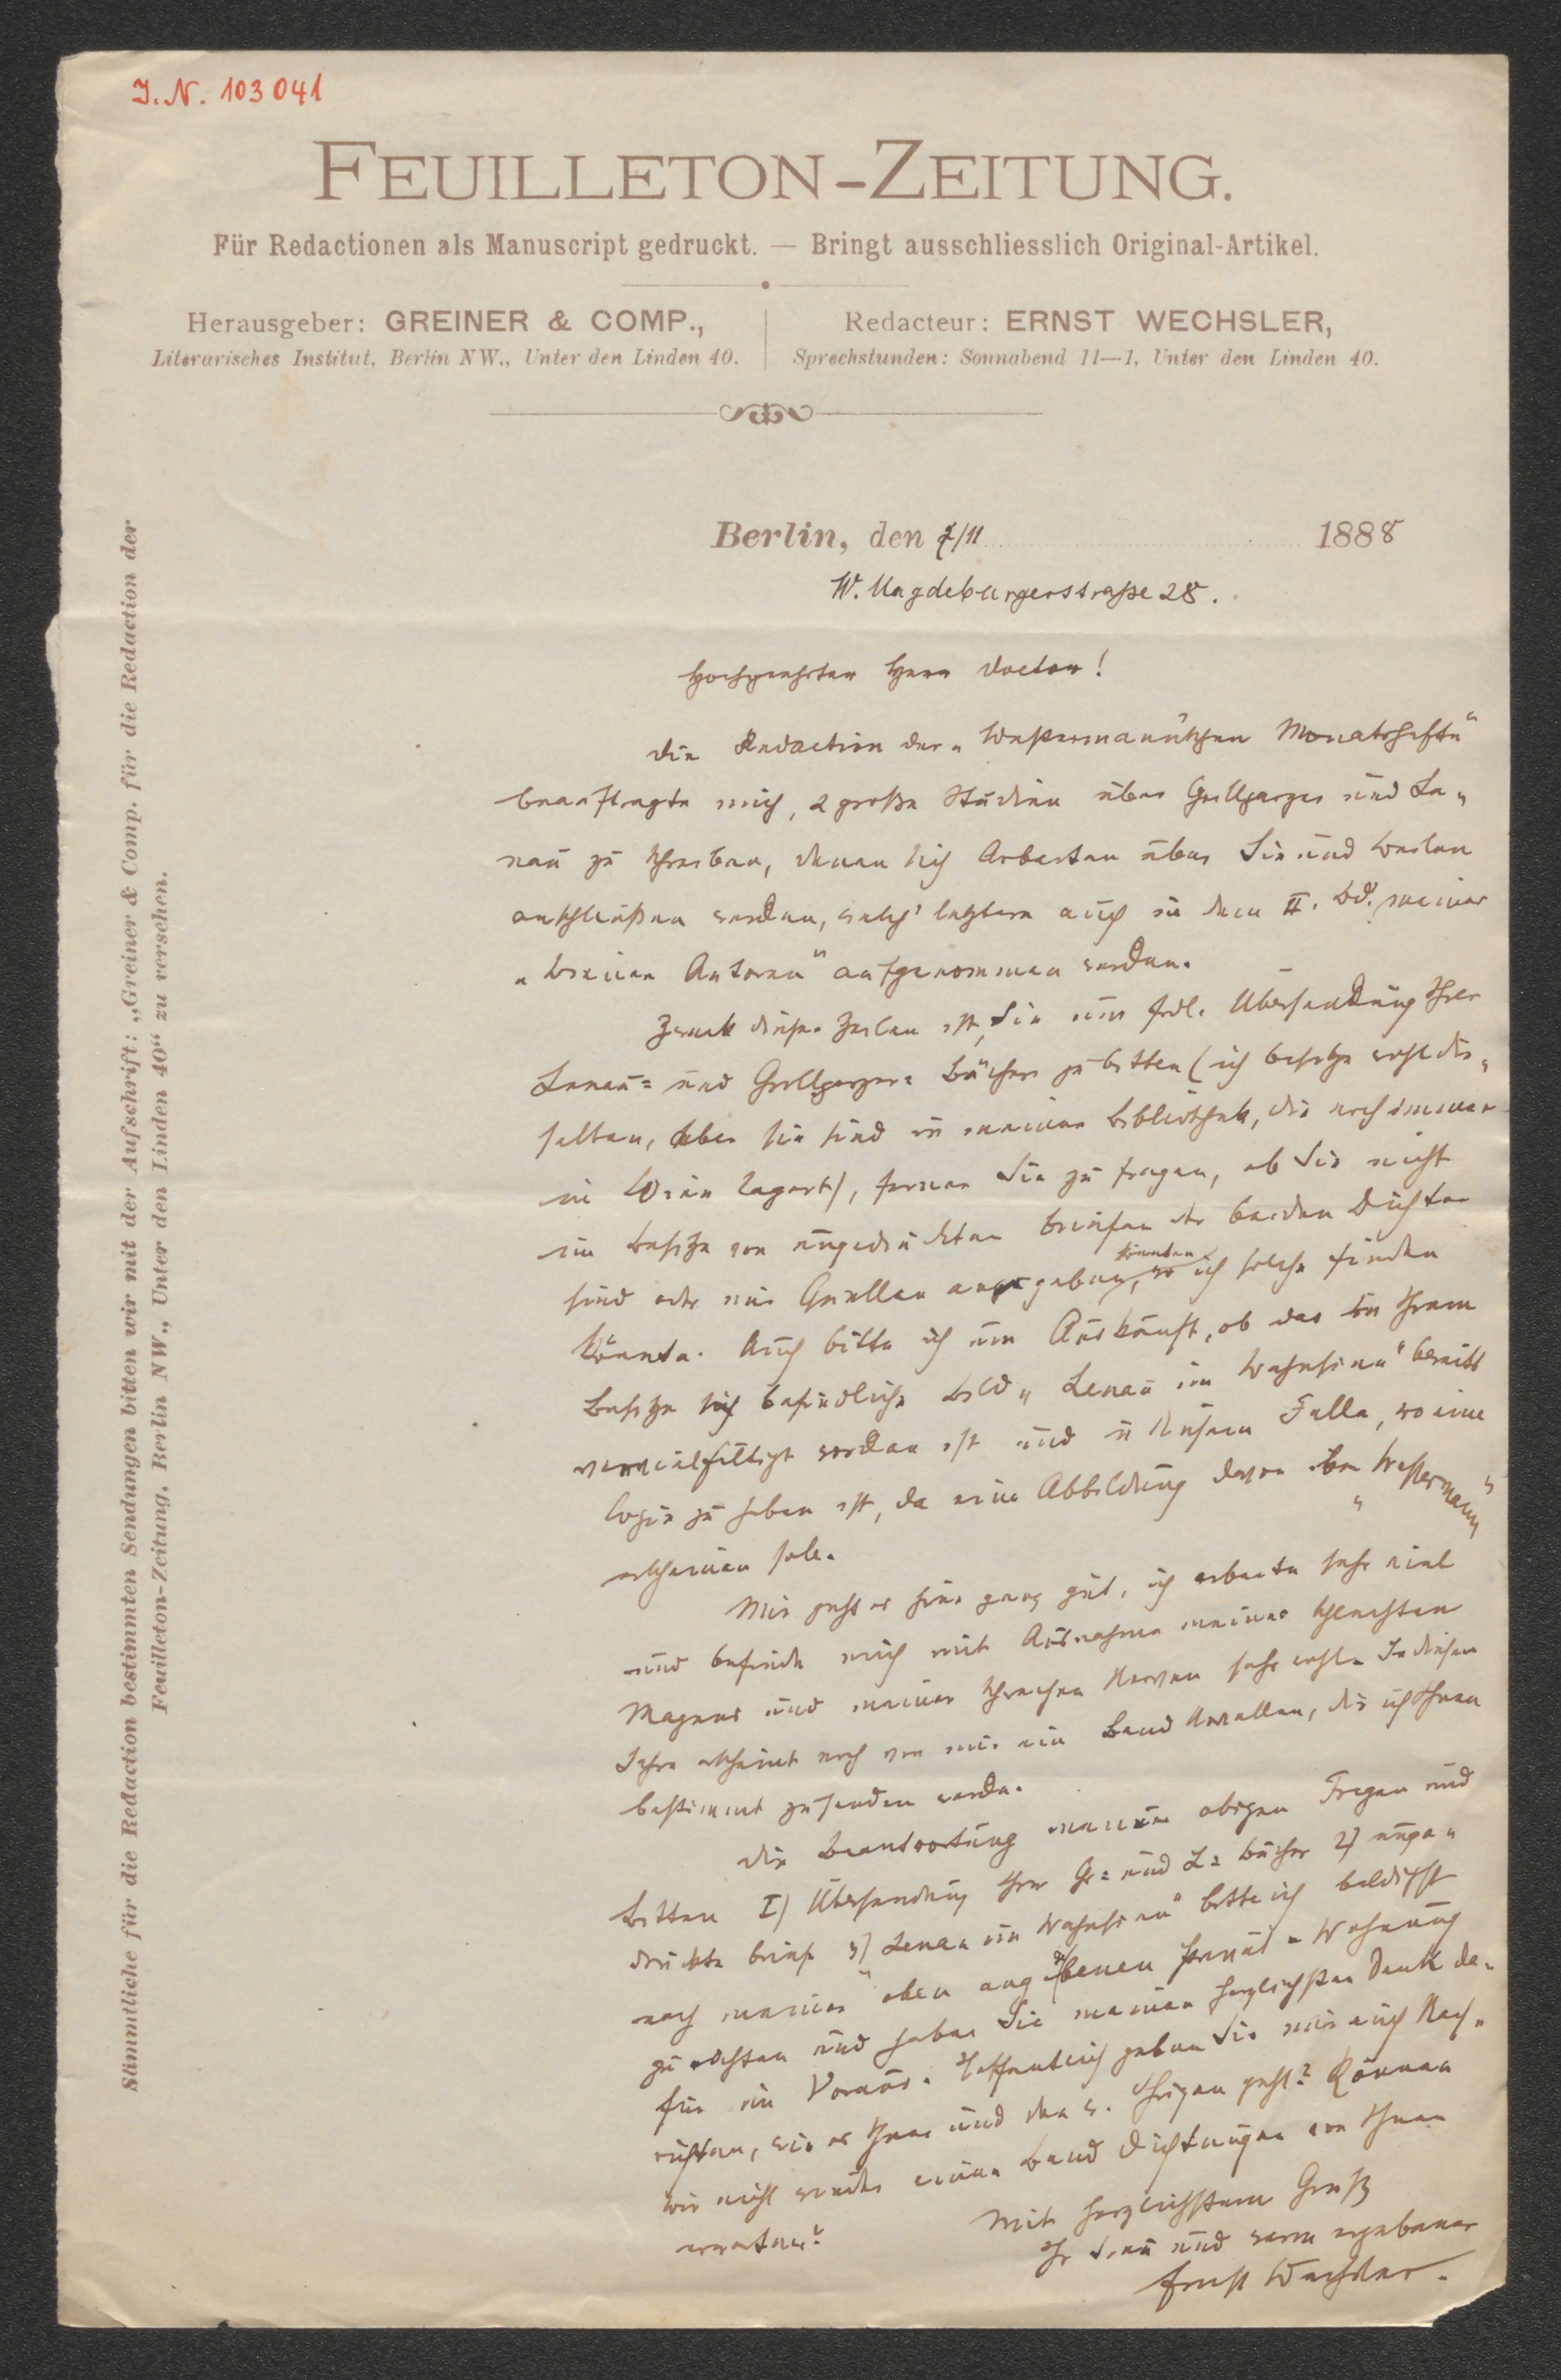 I. N. 103041
FEUILLETON-ZEITUNG.
Für Redactionen als Manuscript gedruckt. — Bringt ausschliesslich Original-Artikel.
Herausgeber: GREINER & COMP.,
Literarisches Institut, Berlin NW., Unter den Linden 40.
Redacteur: ERNST WECHSLER,
Sprechstunden: Sonnabend 11—1, Unter den Linden 40.
Sämmtliche für die Redaction bestimmten Sendungen bitten wir mit der Aufschrift: „Greiner & Comp. für die Redaction der
Feuilleton-Zeitung, Berlin NW., Unter den Linden 40“ zu versehen.
Berlin, den 7/11 1888
W. Magdeburgerstraße 28.
Hochgeehrter Herr Doctor!
Die Redaction der „Westermann'schen Monatshefte“
beauftragte mich, 2 große Studien über Grillparzer und Le„
nau zu schreiben, denen sich Arbeiten über Sie und
anschließen werden, welch' letztere auch in den II. Bd. meiner
„Wiener Autoren“ aufgenommen werden.
Zweck dieser Zeilen ist, Sie um frdl. Übersendung Ihrer
Lenau= und Grillparzer= Bücher zu bitten (ich besitze wohl die„
selben, aber sie sind in meiner Bibliothek, die noch immer
in Wien lagert), ferner Sie zu fragen, ob Sie nicht
im Besitze von ungedruckten Briefen der beiden Dichter
sind oder mir Quellen angeben könnten, wo ich solche finden
könnte. Auch bitte ich um Auskunft, ob das in Ihrem
Besitze sich befindliche Bild „Lenau im Wahnsinn“ bereits
vervielfältigt worden ist und in diesem Falle, wo eine
Copie zu haben ist, da eine Abbildung davon bei „Westermann“
erscheinen soll.
Mir geht es hier ganz gut, ich arbeite sehr viel
und befinde mich mit Ausnahme meines schlechten
Magens und meiner schwachen Nerven sehr wohl. In diesem
Jahre erscheint noch von mir ein Band Novellen, die ich Ihnen
bestimmt zusenden werde.
Die Beantwortung meiner obigen Fragen und
Bitten I) Übersendung Ihrer Gr= und L= Bücher 2) unge„
druckte Briefe 3) Lenau im Wahnsinn“ bitte ich baldigst
nach meiner oben angegebenen Privat-Wohnung
zu richten und haben Sie meinen herzlichsten Dank da„
für im Voraus. Hoffentlich geben Sie mir auch Nach„
richten, wie es Ihnen und den w. Ihrigen geht? Können
wir nicht wieder einen Band Dichtungen von Ihnen
erwarten?
Mit herzlichstem Gruß
Ihr treu und warm ergebener
Ernst Wechsler.